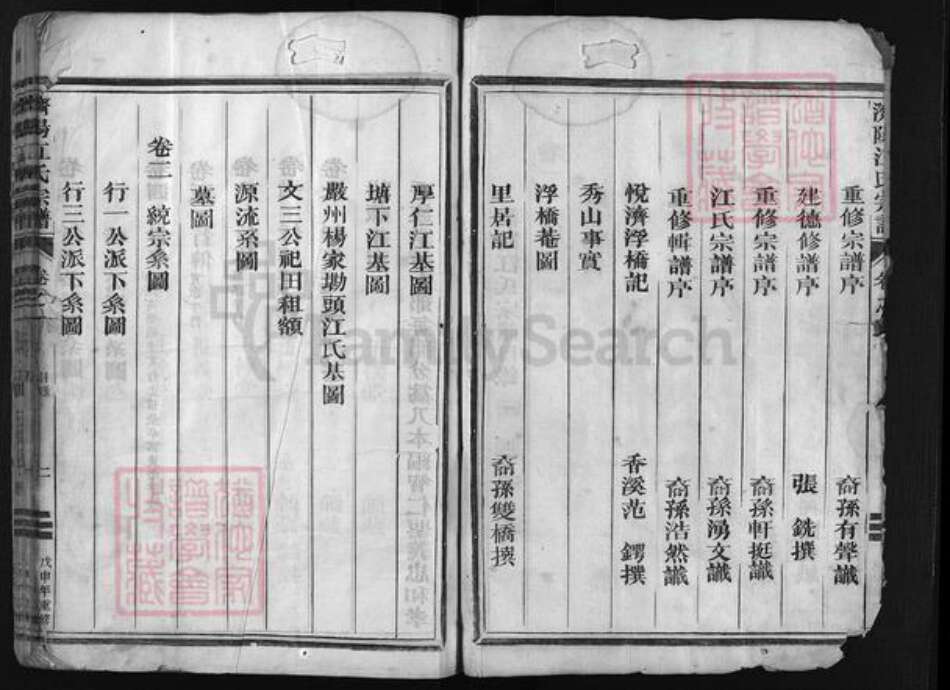 濟陽江氏宗譜
重修宗譜序 裔孫有聲識
建德修譜序 張 銑撰
重修宗譜序 裔孫軒挺識
江氏宗譜序 裔孫湧文識
重修輯譜序 裔孫浩然識
悅濟浮橋記 香溪范 鍔撰
秀山事實
浮橋菴圖
里居記 裔孫雙橋撰
厚仁江基圖
塘下江基圖
嚴州楊家塢頭江氏基圖
文三公祀田租額
源流系圖
墓圖
卷二 統宗系圖
行一公派下系圖
行三公派下系圖
濟陽江氏宗譜 卷之一 二 戊申年重修
FamilySearch